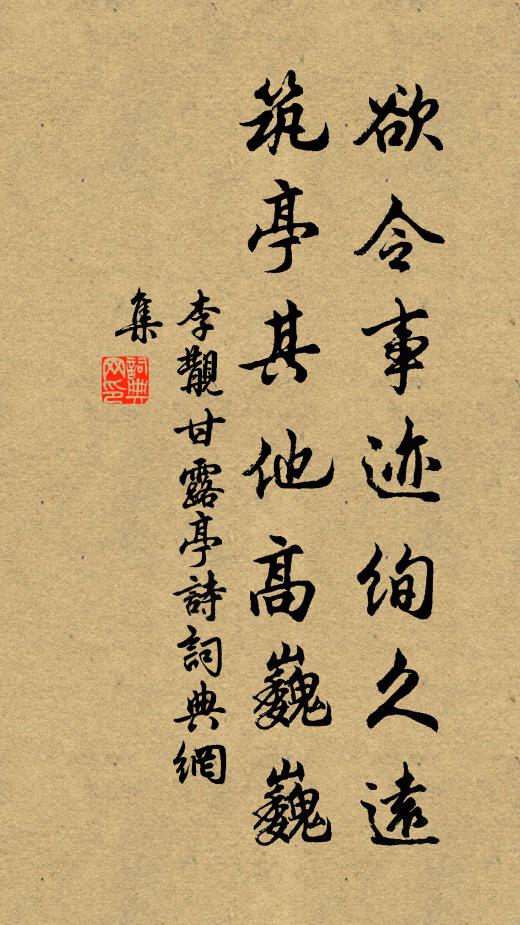 欲令事迹绚久远
筑亭其他高巍巍
李觀甘露亭詩詞典網
集
詞典
网印